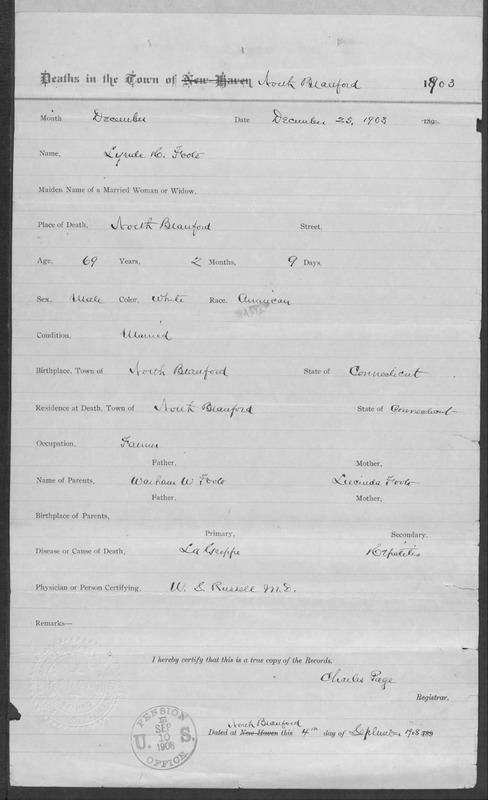 Deaths in the Town of New Haven North Branford 1903
Month December Date December 25, 1903 189
Name, H. Foote
Maiden Name of a Married Woman or Widow,
Place of Death, North Branford Street,
Age, 69 Years, 2 Months, 9 Days.
Sex, Male Color, White Race, American
Condition, Married
Birthplace, Town of North Branford State of Connecticut
Residence at Death, Town of North Branford State of Connecticut
Occupation, Farmer
Father, Mother,
Name of Parents, Warham W Foote Lucinda Foote
Father, Mother,
Birthplace of Parents,
Primary, Secondary.
Disease or Cause of Death, La Grippe Hepatitis
Physician or Person Certifying, W. S. Russell M.D.
Remarks—
I hereby certify that this is a true copy of the Records.
Charles Page
Registrar.
North Branford
Dated at New Haven this 4th day of September 1908 189
U. S. PENSION OFFICE
SEP
10
1908